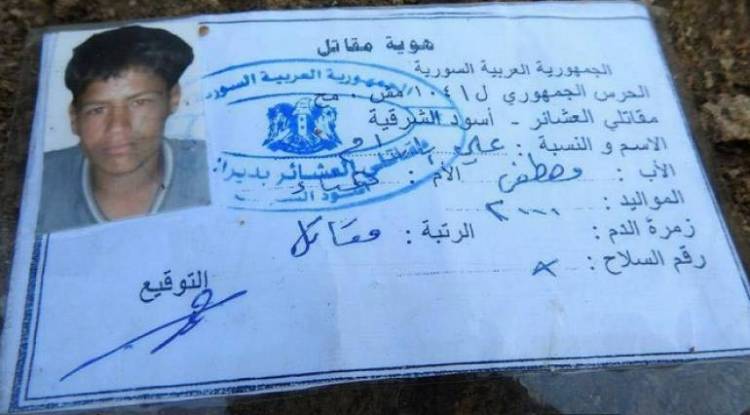 هوية مقاتل
الجمهورية العربية السورية
الحرس الجمهوري ل/١٠٤/مش . مح
مقاتلي العشائر - أسود الشرقية
الاسم و النسبة : علي
الأب : مصطفى الأم :
المواليد : ٢٠٠٠
زمرة الدم : الرتبة : مقاتل
رقم السلاح :
التوقيع
الجمهورية العربية السورية
مقاتلي العشائر بدير